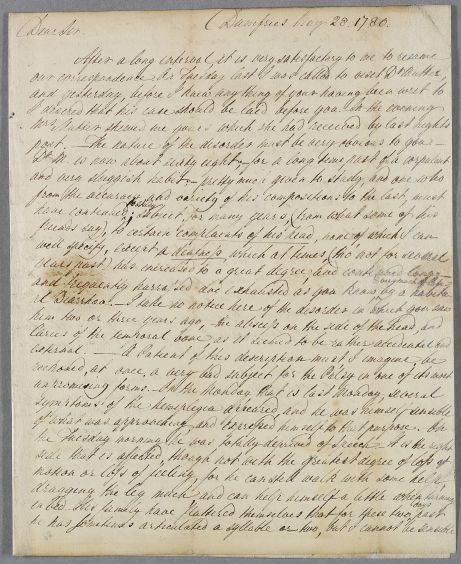 Dear Sir. (Dumfries Aug. 28. 1780.
After a long interval, it is very satisfactory to me to resume
our correspondence. On Tuesday last I was called to visit Dr Mutter,
and yesterday, before I knew any thing of your having been writ to
I advised that his case should be laid before you. In the evening
Mrs Mutter shewed me yours which she had received by last nights
post. — The nature of the disorder must be very obvious to you —
Dr M. is now about sixty eight — for a long time past of a corpulent
and very sluggish habit — pretty much given to study, and one who
from the accuracy and variety of his compositions to the last, must
have continued to study
subject, for many years, (from what some of his
friends say) to certain complaints of his head, none of which I can
well specify, except a deafness which at times, (tho' not for several
years past) has increased to a great degree, and
and frequently harrassed and exhausted as you know by a habitu-
al Diarrhœa. — I take no notice here of the disorder in which you saw
him two or three years ago, the abscess on the side of the head, and
Caries of the temporal bone as it seemed to be rather accidental and
external. — A Patient of this description must I imagine be
reckoned, at once, a very bad subject for the Palsy in one of its most
unpromising forms. — On the Monday that is last Monday, several
symptoms of the Hemiplegia appeared, and he was himself sensible
of what was approaching, and expressed himself to that purpose. On
the Tuesday morning he was totally deprived of speech. It is the right
side that is affected, though not with the greatest degree of loss of
motion or loss of feeling, for he can still walk with some help
dragging the leg much, and can help himself a little when turning
in bed. His family have flattered themselves that for these two days past
he has sometimes articulated a syllable or two, but I cannot be sensible